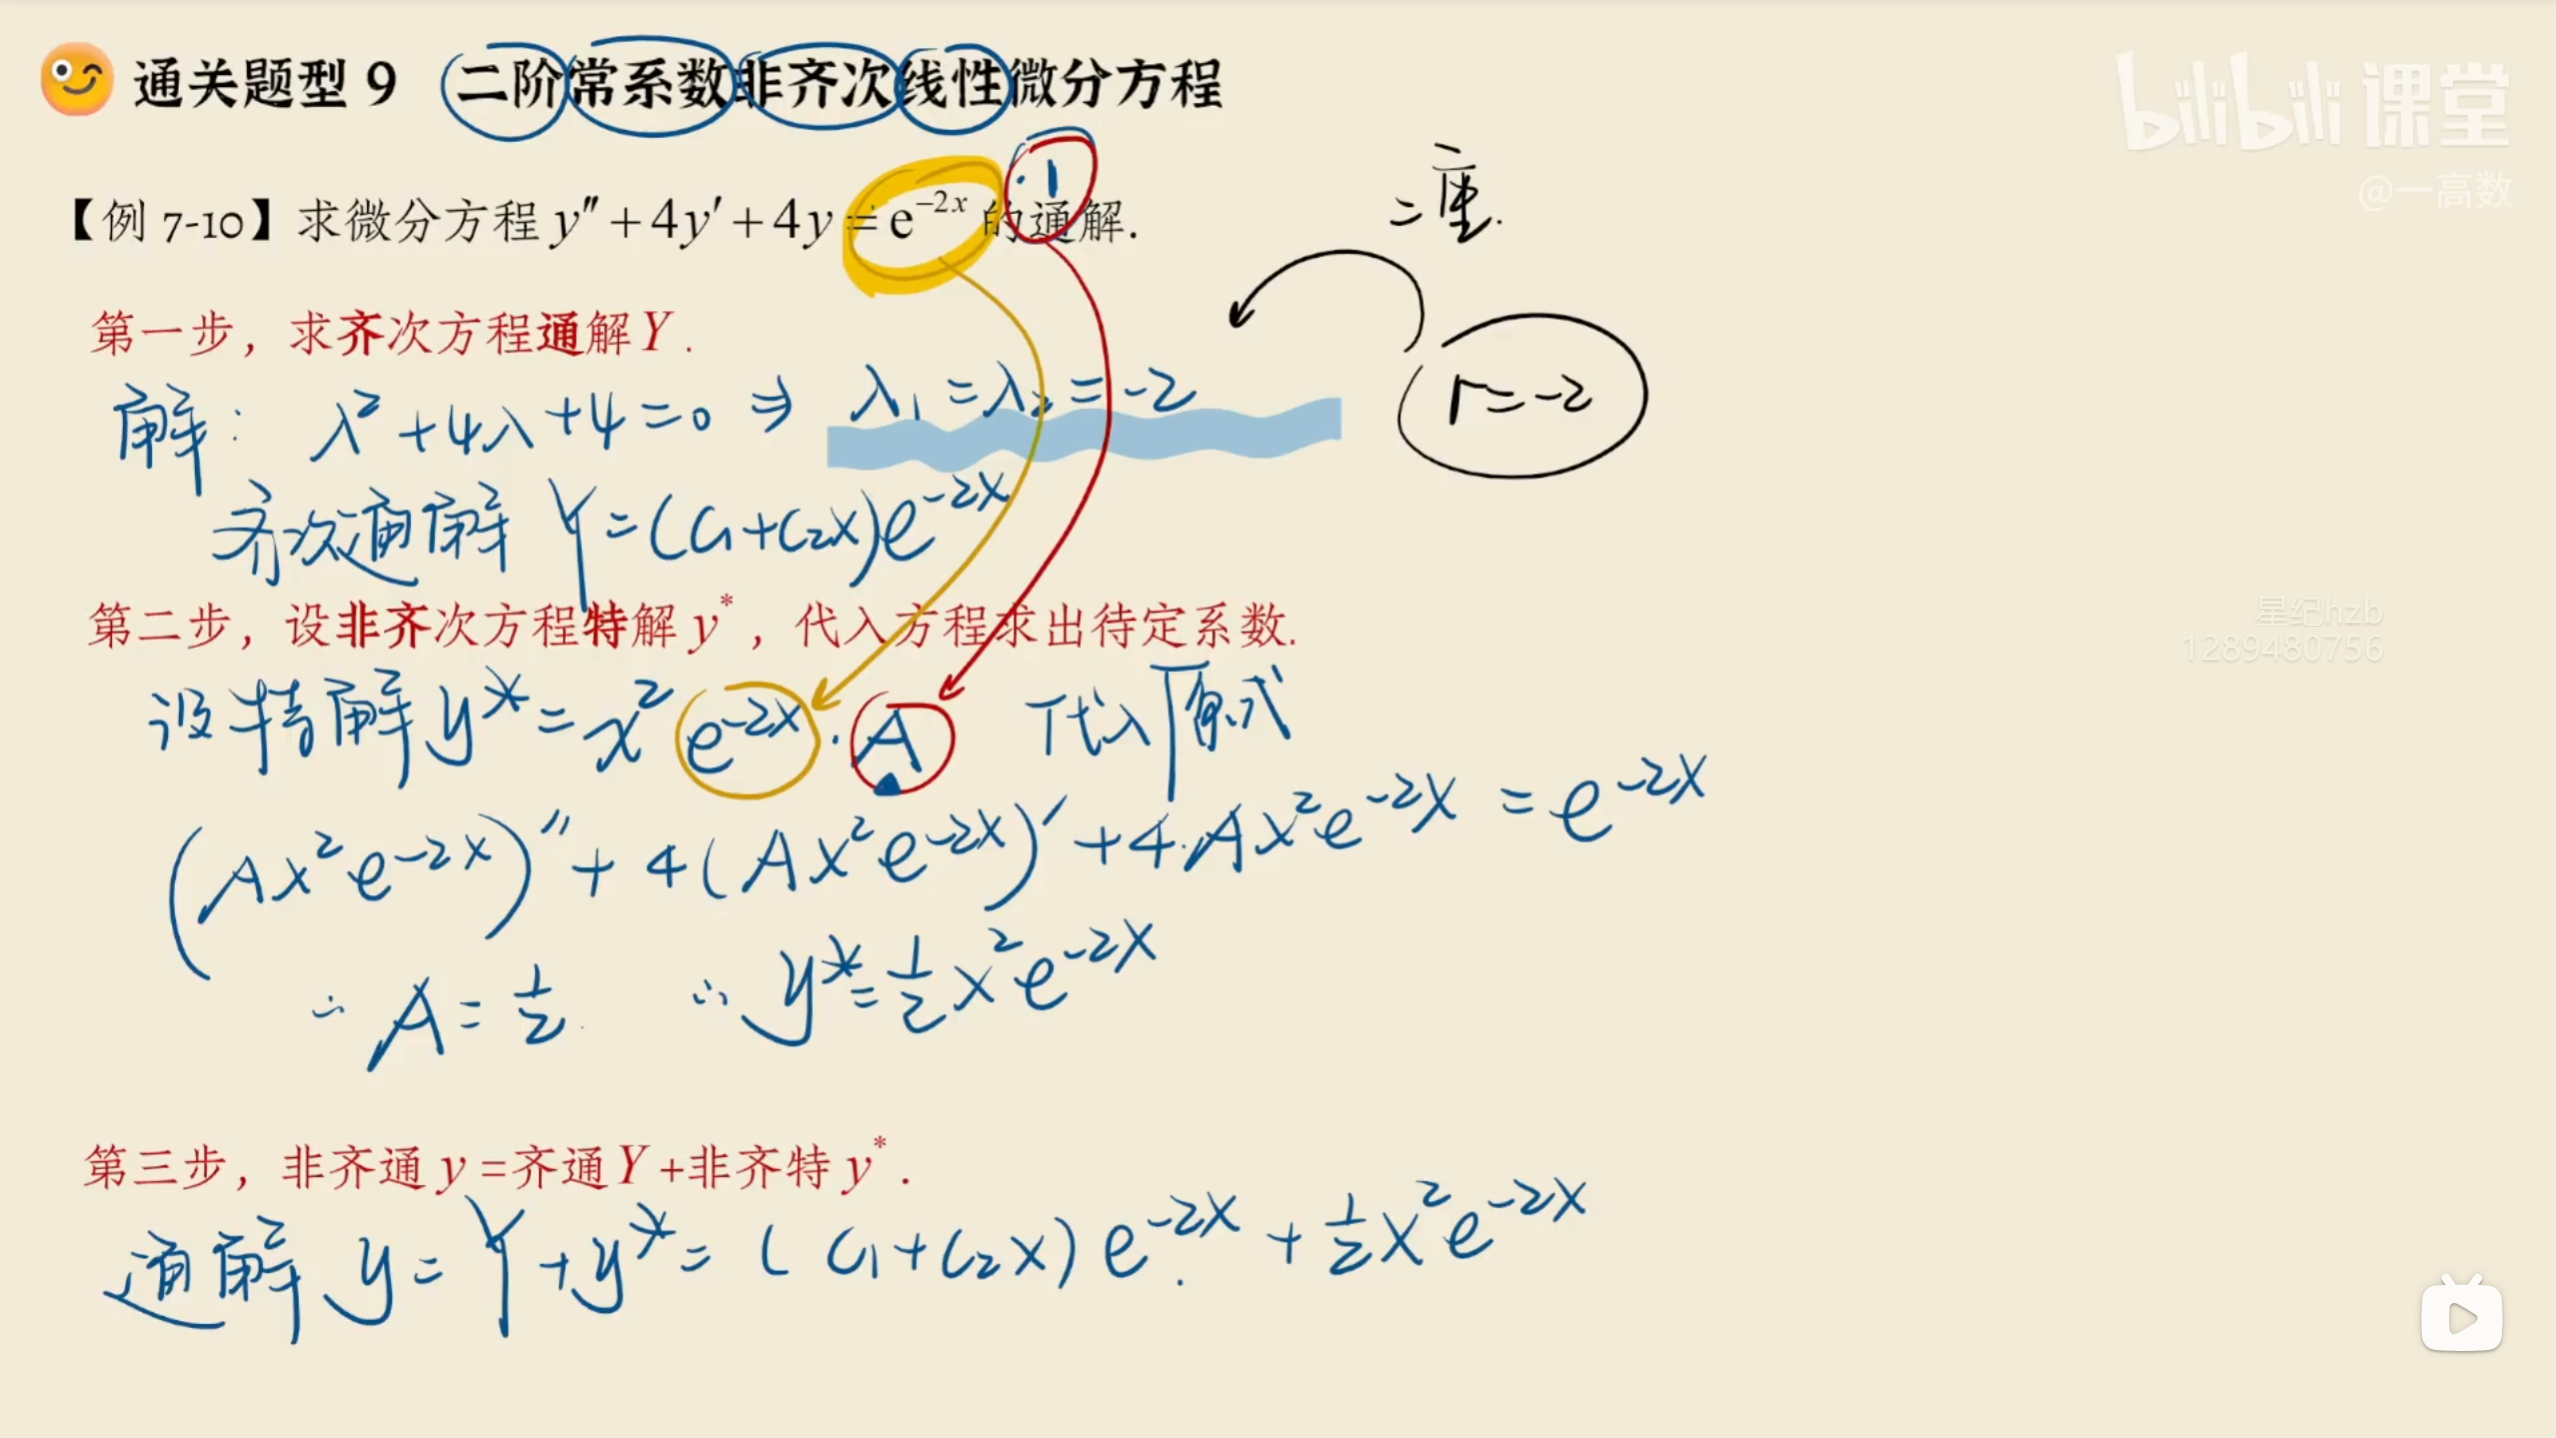 通关题型 9 二阶常系数非齐次线性微分方程
bilibili 课堂
@一高数
·1
二重.
【例 7-10】求微分方程 y″+4y′+4y=e^{-2x} 的通解.
第一步，求齐次方程通解Y.
解: λ²+4λ+4=0 ⇒ λ₁=λ₂=-2
r=-2
齐次通解 Y=(C₁+C₂x)e^{-2x}
第二步，设非齐次方程特解 y*，代入方程求出待定系数.
星纪hzb
1289480756
设特解 y*=x²e^{-2x}·A 代入原式
(Ax²e^{-2x})″+4(Ax²e^{-2x})′+4·Ax²e^{-2x}=e^{-2x}
∴ A=1/2 ∴ y*=1/2x²e^{-2x}
第三步，非齐通 y=齐通Y+非齐特 y*.
通解 y=Y+y*=(C₁+C₂x)e^{-2x}+1/2x²e^{-2x}